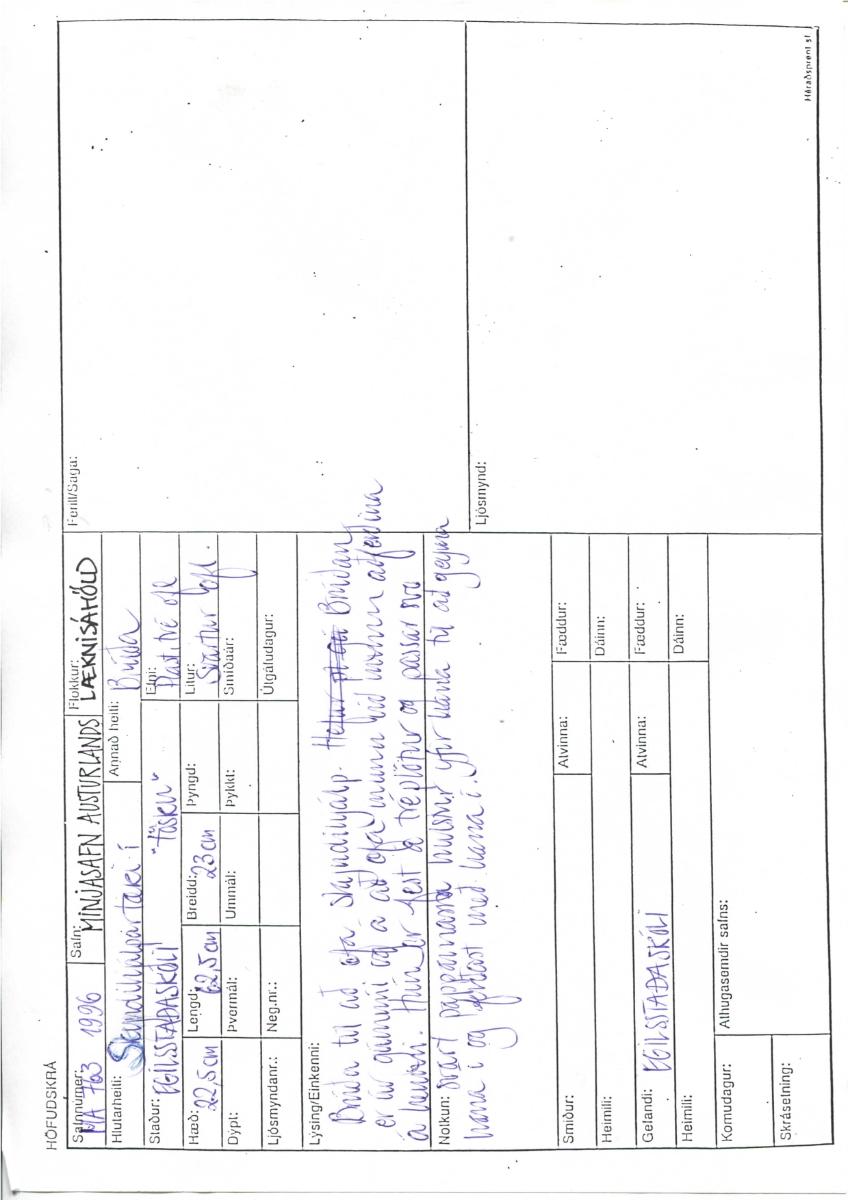 HÖFUÐSKRÁ
Safnnúmer: MA 763 1996 Safn: MINJASAFN AUSTURLANDS Flokkur: LÆKNISÁHÖLD
Hlutarheiti: Skyndihjálpartæki í Annað heiti: Brúða
"tösku"
Staður: EGILSSTAÐASKÓLI Efni: Plast, tré ofl
Hæð: 22,5cm Lengd: 62,5cm Breidd: 23cm Þyngd: Litur: Svartur ofl.
Dýpt: Þvermál: Ummál: Þykkt: Smíðaár:
Ljósmyndanr.: Neg.nr.: Útgáfudagur:
Lýsing/Einkenni:
Brúða til að æfa skyndihjálp. Brúðan
er úr gúmmíi og á að æfa munn við munn aðferðina
á henni. Hún er fest á tréplötur og passar svo
Notkun: svart pappamassa hulstur yfir hana til að geyma
hana í og ferðast með hana í.
Smiður: Atvinna: Fæddur:
Heimili: Dáinn:
Gefandi: EGILSSTAÐASKÓLI Atvinna: Fæddur:
Heimili: Dáinn:
Komudagur: Athugasemdir safns:
Skráselning:
Ferill/Saga:
Ljósmynd:
Héraðsprent sf